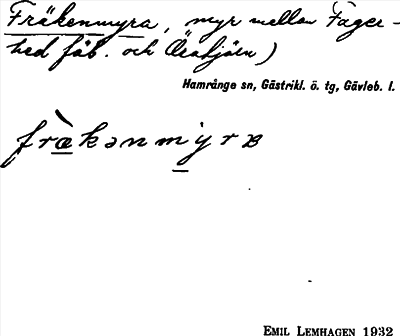 Fräkenmyra, myr mellan Fager-
hed fäb. och Öratjärn)
Hamrånge sn, Gästrikl. ö. tg, Gävleb. l.
fræ̀kənmyrɒ
EMIL LEMHAGEN 1932